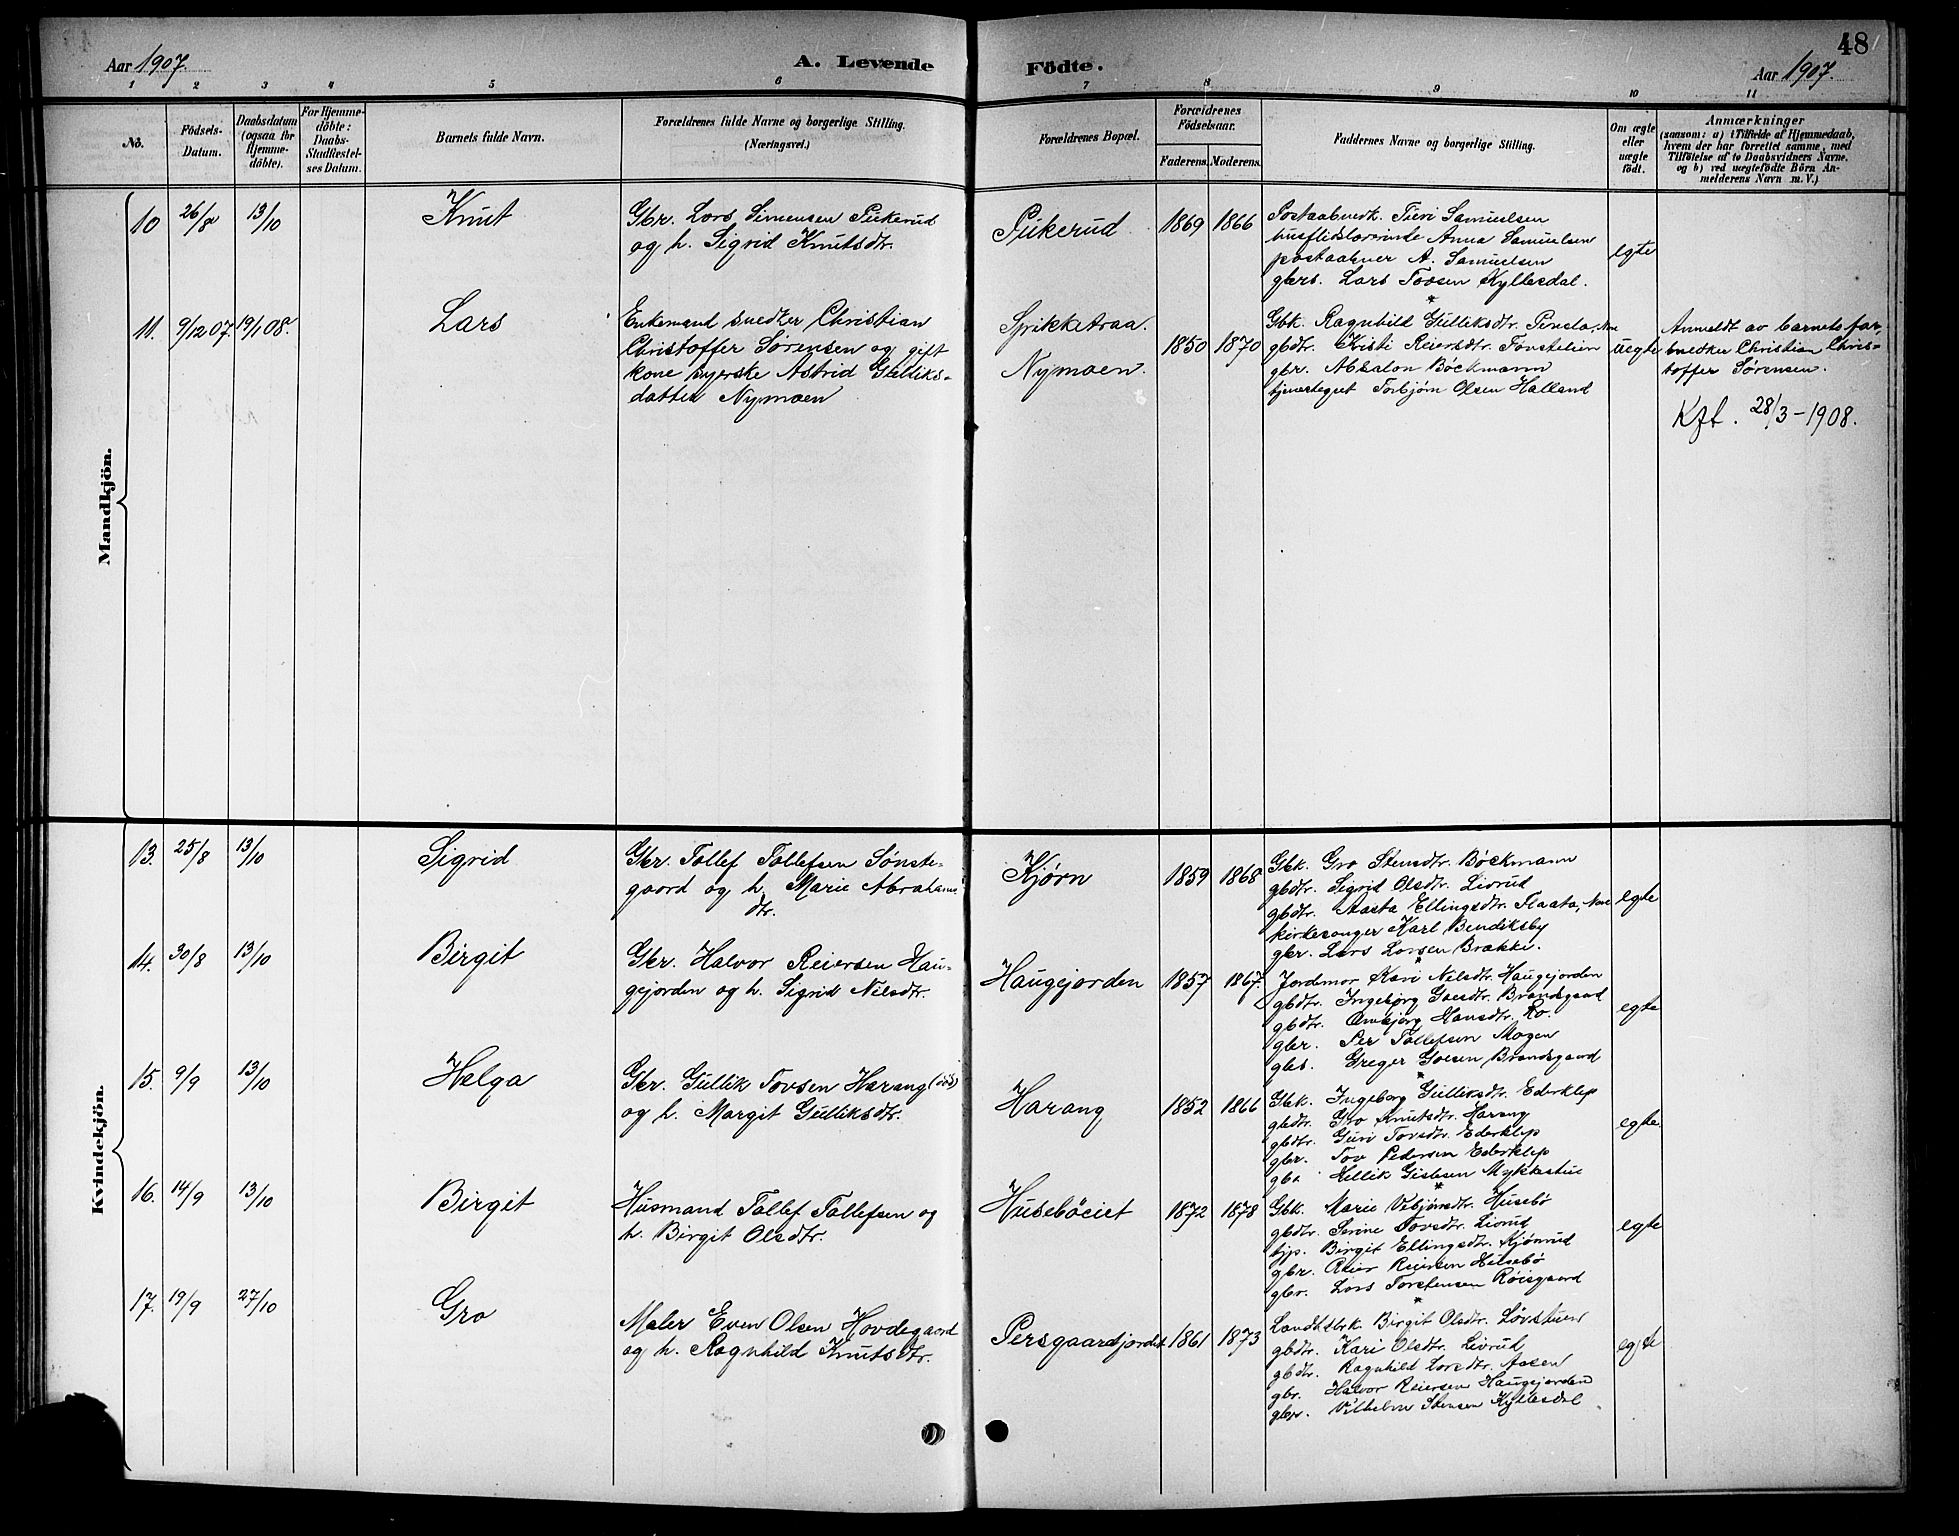 48
Aar 1907.
A. Levende Födte.
Aar 1907.
1 2 3 4 5 6 7 8 9 10 11
No.
Födsels-
Datum.
Daabsdatum
(ogsaa for
Hjemme-
döbte).
For Hjemme-
döbte:
Daabs-
Stadfæstel-
ses Datum.
Barnets fulde Navn.
Forældrenes fulde Navne og borgerlige Stilling.
(Næringsvei.)
Forældrenes Bopæl.
Forældrenes
Födselsaar.
Faderens. Moderens.
Faddernes Navne og borgerlige Stilling.
Om ægte
eller
uægte
födt.
Anmærkninger
(saasom: a) i Tilfælde af Hjemmedaab,
hvem der har forrettet samme, med
Tilföielse af to Daabsvidners Navne.
og b) ved uægtefödte Börn An-
melderens Navn m. V.)
Mandkjön.
10 26/8 13/10 Knut
Gbr. Lars Simensen Pukerud
og h. Sigrid Knutsdtr.
Pukerud 1869 1866
Postaabnedtr. Turi Samuelsen
husflidslærerinde Anna Samuelsen
postaabner A. Samuelsen
gbrs. Lars Tovsen Kyllesdal.
egte
11. 9/12 07. 19/1 08. Lars
Enkemand snedker Christian
Christoffer Sørensen og gift
kone syerske Astrid Gulliks-
datter Nymoen
Sprikketraa.
Nymoen.
1850 1870
Gbk. Ragnhild Gulliksdtr.
gbdtr. Kristi Reiersdtr.
gbr. Absalon Böckmann
tjenestegut Torbjørn Olsen Halland
uegte
Anmeldt av barnets far,
snedker Christian Chris-
toffer Sørensen.
Kft. 28/3-1908.
Kvindekjön.
13. 25/8 13/10 Sigrid
Gbr. Tollef Tollefsen Sønste-
gaard og h. Marie Abrahams
dtr.
Kjørn 1859 1868
Gbk. Gro Stensdtr. Böckmann
gbdtr. Sigrid Olsdtr. Livrud
gbdtr. Aasta Ellingsdtr. Flaata, Nore
kirkesanger Karl Bendiksby
gbr. Lars Larsen Brække.
egte
14. 30/8 13/10 Birgit
Gbr. Halvor Reiersen Hau-
gejorden og h. Sigrid Nilsdtr.
Haugejorden 1857 1867.
Jordmor Kari Nilsdtr. Haugejorden
gbdtr. Ingebjørg Goesdtr. Brandsgaard
gbdtr. Ambjørg Hansdtr. Ro.
gbr. Per Tollefsen Mogen
gbs. Greger Goesen Brandsgaard
egte
15. 9/9 13/10 Helga
Gbr. Gullik Tovsen Harang (död)
og h. Margit Gulliksdtr.
Harang 1852 1866
Gbk. Ingeborg Gulliksdtr. Ederklep
gbdtr. Gro Knutsdtr. Harang
gbdtr. Guri Tovsdtr. Ederklep
gbr. Tov Pedersen Ederklep
gbs Hellik Gislesen Mykkestue
egte.
16. 14/9 13/10 Birgit
Husmand Tollef Tollefsen og
h. Birgit Olsdtr.
Husebøeiet 1872 1878
Gbk. Marie Vebjørnsdtr. Husebø
gbdtr. Serine Tovsdtr. Livrud
tjp. Birgit Ellingsdtr. Kjønrud
gbr. Reier Reiersen Husebø
gbr. Lars Torstensen Röisgaard
egte
17. 19/9 27/10 Gro
Maler Even Olsen Hovdegaard
og h. Ragnhild Knutsdtr.
Persgaardjordet 1861 1873
Landhk. Birgit Olsdtr. Løvstuen
gbdtr. Kari Olsdtr. Livrud
gbdtr. Ragnhild Larsdtr. Aasen
gbr. Halvor Reiersen Haugejorden
gbr. Vilhelm Stensen Kyllesdal
egte